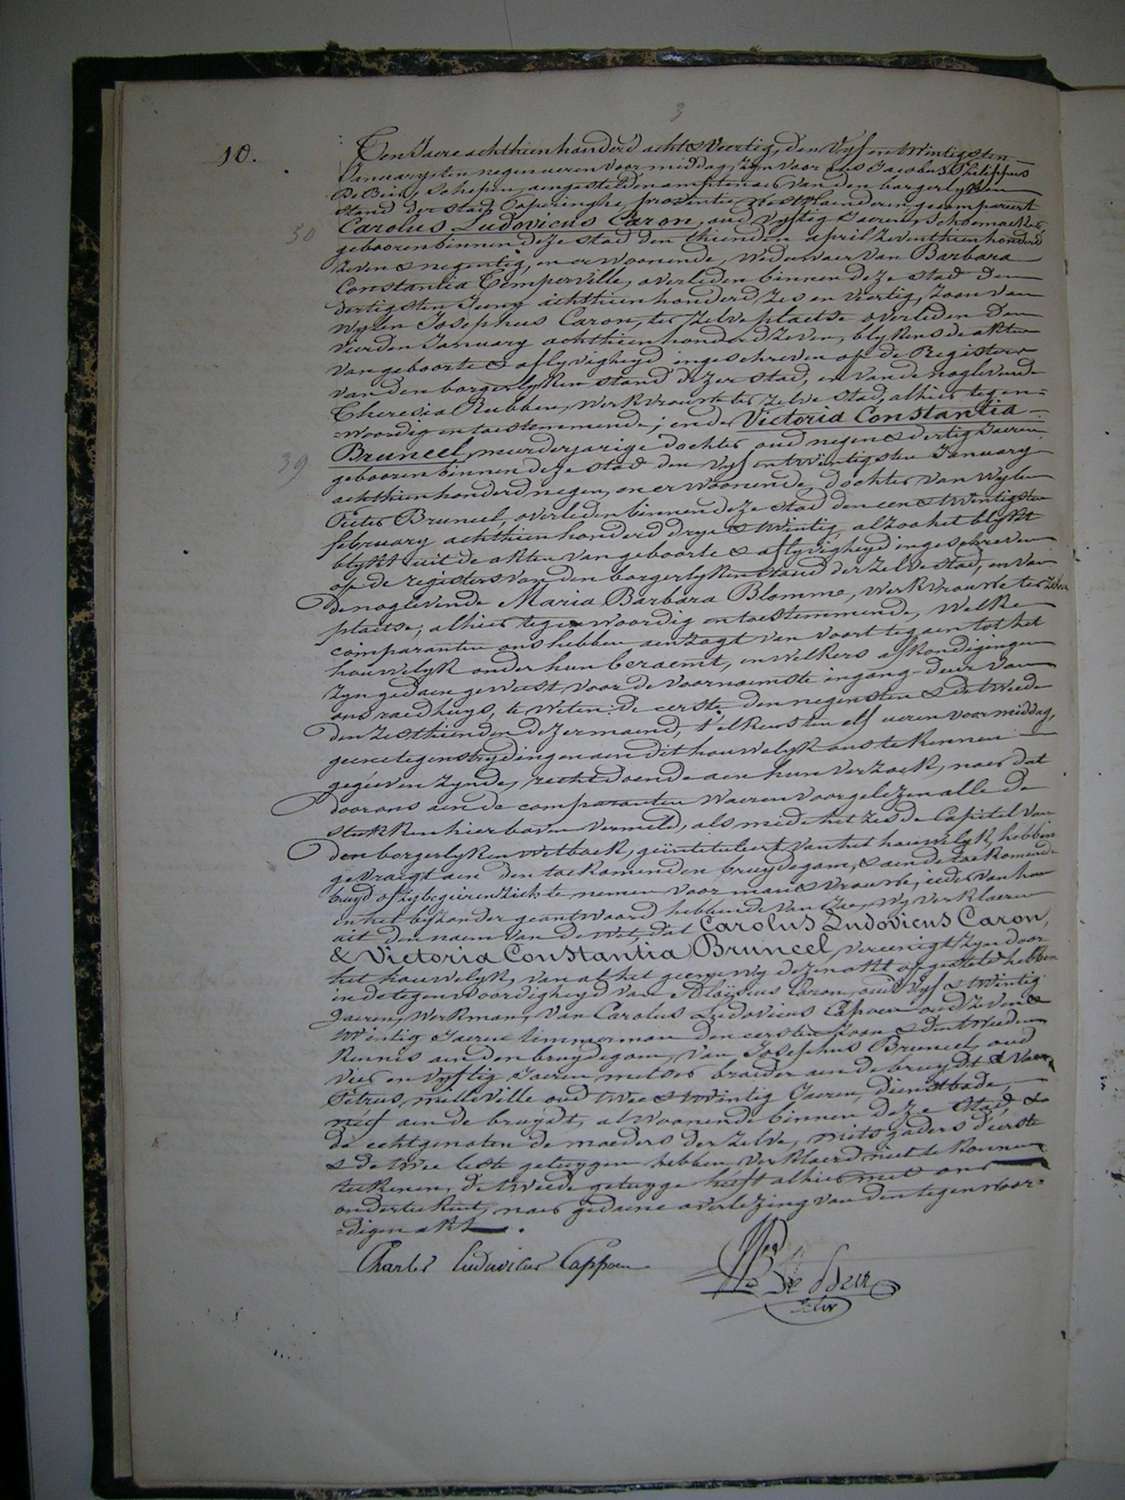 3
10.
Ten Jaere achthien honderd acht & Veertig, den Vyf en Twintigsten
January ten negen ueren voor middag, zyn voor ons Jacobus Philippus
De Beir, Schepen, aengestelden amptenaer van den borgerlyken
stand der stad Poperinghe, provintie Westvlaenderen, gecompareert
50 Carolus Ludovicus Caron, oud Vyftig Jaeren, Schoenmaker,
gebooren binnen deze stad den thienden april zeventhien honderd
zeven & negentig, en er woonende, Weduwaer van Barbara
Constantia Temperville, overleden binnen deze stad den
dertigsten Juny achthien honderd zes en Viertig, Zoon van
Wylen Josephus Caron, ter zelve plaetse overleden den
Vierden January achthien honderd zeven, blykens de akten
van geboorte & aflyvigheyd ingeschreven op de Registers
van den borgerlyken stand dezer stad, en van de noglevende
Theresia Rubben, Werkvrouw ter zelve stad, alhier tegen=
=woordig en toestemmende; ende Victoria Constantia
39 Bruneel, meerderjarige dochter oud negen & dertig Jaeren,
gebooren binnen deze stad den Vyf en twintigsten January
achthien honderd negen, en er woonende, dochter van Wylen
Pieter Bruneel, overleden binnen deze stad den een & twintigsten
february achthien honderd drye & twintig, alzoo het blykt
blykt uit de akten van geboorte & aflyvigheyd ingeschreven
op de registers van den borgerlyken stand der zelve stad, en van
de noglevende Maria Barbara Blomme, Werkvrouwe ter zelver
plaetse, alhier tegenwoordig en toestemmende, Welke
comparanten ons hebben aenzogt van voort te gaen tot het
houwelyk onder hun beraemt, en welkers afkondigingen
zyn gedaen geweest voor de voornaemste ingang-deur van
ons raedhuys, te weten: de eerste den negensten & de tweede
den zesthienden dezer maend, t'elkens ten elf ueren voormiddag,
geene tegenstrydingen aen dit houwelyk ons te kennen
gegeven zynde, recht doende aen hun verzoek, naer dat
door ons aen de comparanten waeren voorgelezen alle de
stukken hier boven vermeld, als mede het zesde Capitel van
den borgerlyken wetboek, geïntituleert van het houwelyk, hebben
gevraegt aen den toekomenden bruydegom, & aen de toekomende
bruyd of zy begeiren zich te nemen voor man & vrouwe, ieder van hun
en het byzonder geantwoord hebbende van Jae, wy verklaeren
uit den naem van de wet, dat Carolus Ludovicus Caron,
& Victoria Constantia Bruneel, vereenigt zyn door
het houwelyk, van al het geene wy dezen akt opgesteld hebben
in de tegenwoordigheyd van Aloÿsius Caron, oud vyf & twintig
Jaeren, Werkman, van Carolus Ludovicus Capoen oud zeven &
twintig Jaeren timmerman den eersten zoon & den tweeden
Kennis aen den bruydegom, van Josephus Bruneel, oud
vier en vyftig Jaeren, metser broeder aen de bruydt & van
Petrus Milleville oud twee & twintig Jaeren, dienstbode,
néef aen de bruydt, al woonende binnen deze stad, &
de echtgenoten de moeders der zelve, mitsgaders d'eerste
& de twee leste getuygen hebben verklaerd niet te konnen
teekenen, de tweede getuyge heeft alhier met ons
onderteekent, naer gedaene overlezing van den tegenwoor=
=digen akt.
Charles Luduvicus Cappoen
De Beir